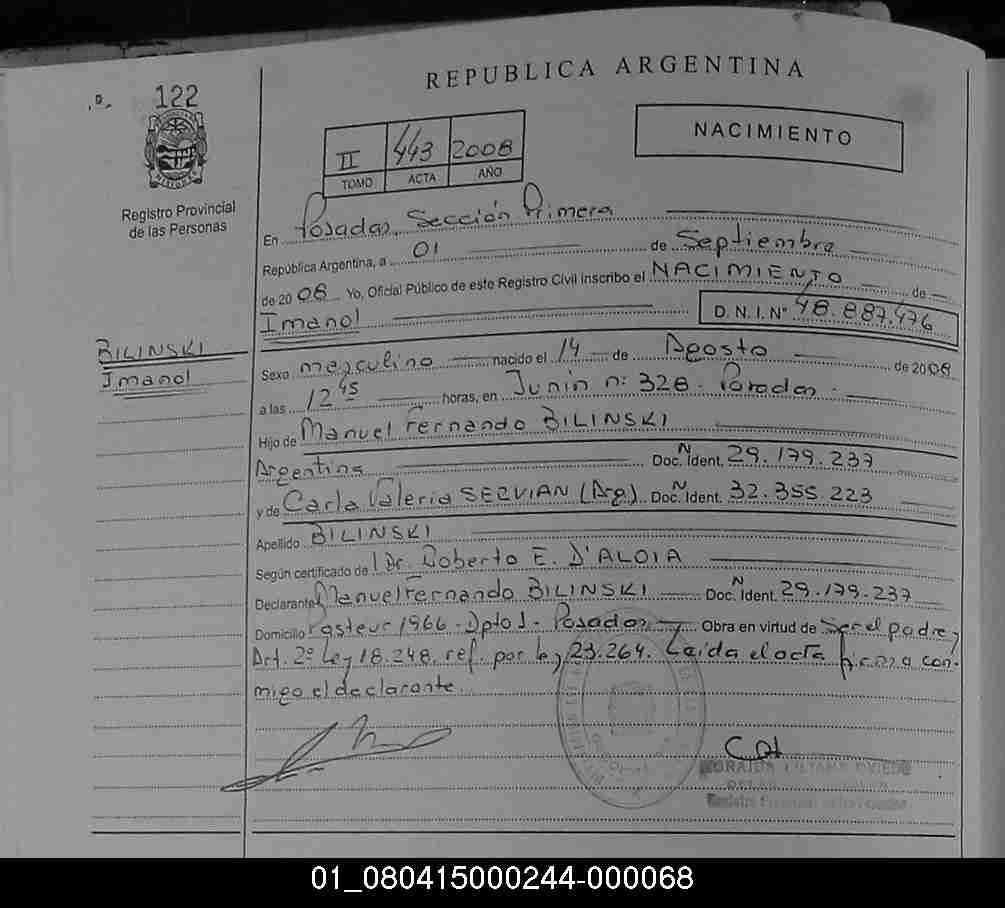 REPUBLICA ARGENTINA
122
NACIMIENTO
II 443 2008
TOMO ACTA AÑO
Registro Provincial
de las Personas
En Posadas, Sección Primera
República Argentina, a 01 de Septiembre
de 2008 Yo, Oficial Público de este Registro Civil inscribo el NACIMIENTO de
Imanol D.N.I.Nº 48.887.476
BILINSKI
Imanol
Sexo masculino nacido el 14 de Agosto de 2008
a las 12 45 horas, en Junín n: 328. Posadas
Hijo de Manuel Fernando BILINSKI
Argentina Doc. N Ident. 29.179.237
y de Carla Valeria SERVIAN (Arg). Doc. N Ident. 32.355.223
Apellido BILINSKI
Según certificado de Dr. Roberto E. D'ALOIA
Declarante Manuel Fernando BILINSKI Doc. N Ident. 29.179.237
Domicilio Pasteur 1966 - Dpto 1 - Posadas Obra en virtud de Ser el padre y
Art. 2º Ley 18.248, ref. por ley 23.264. Leída el acta firma con-
migo el declarante.
01_080415000244-000068